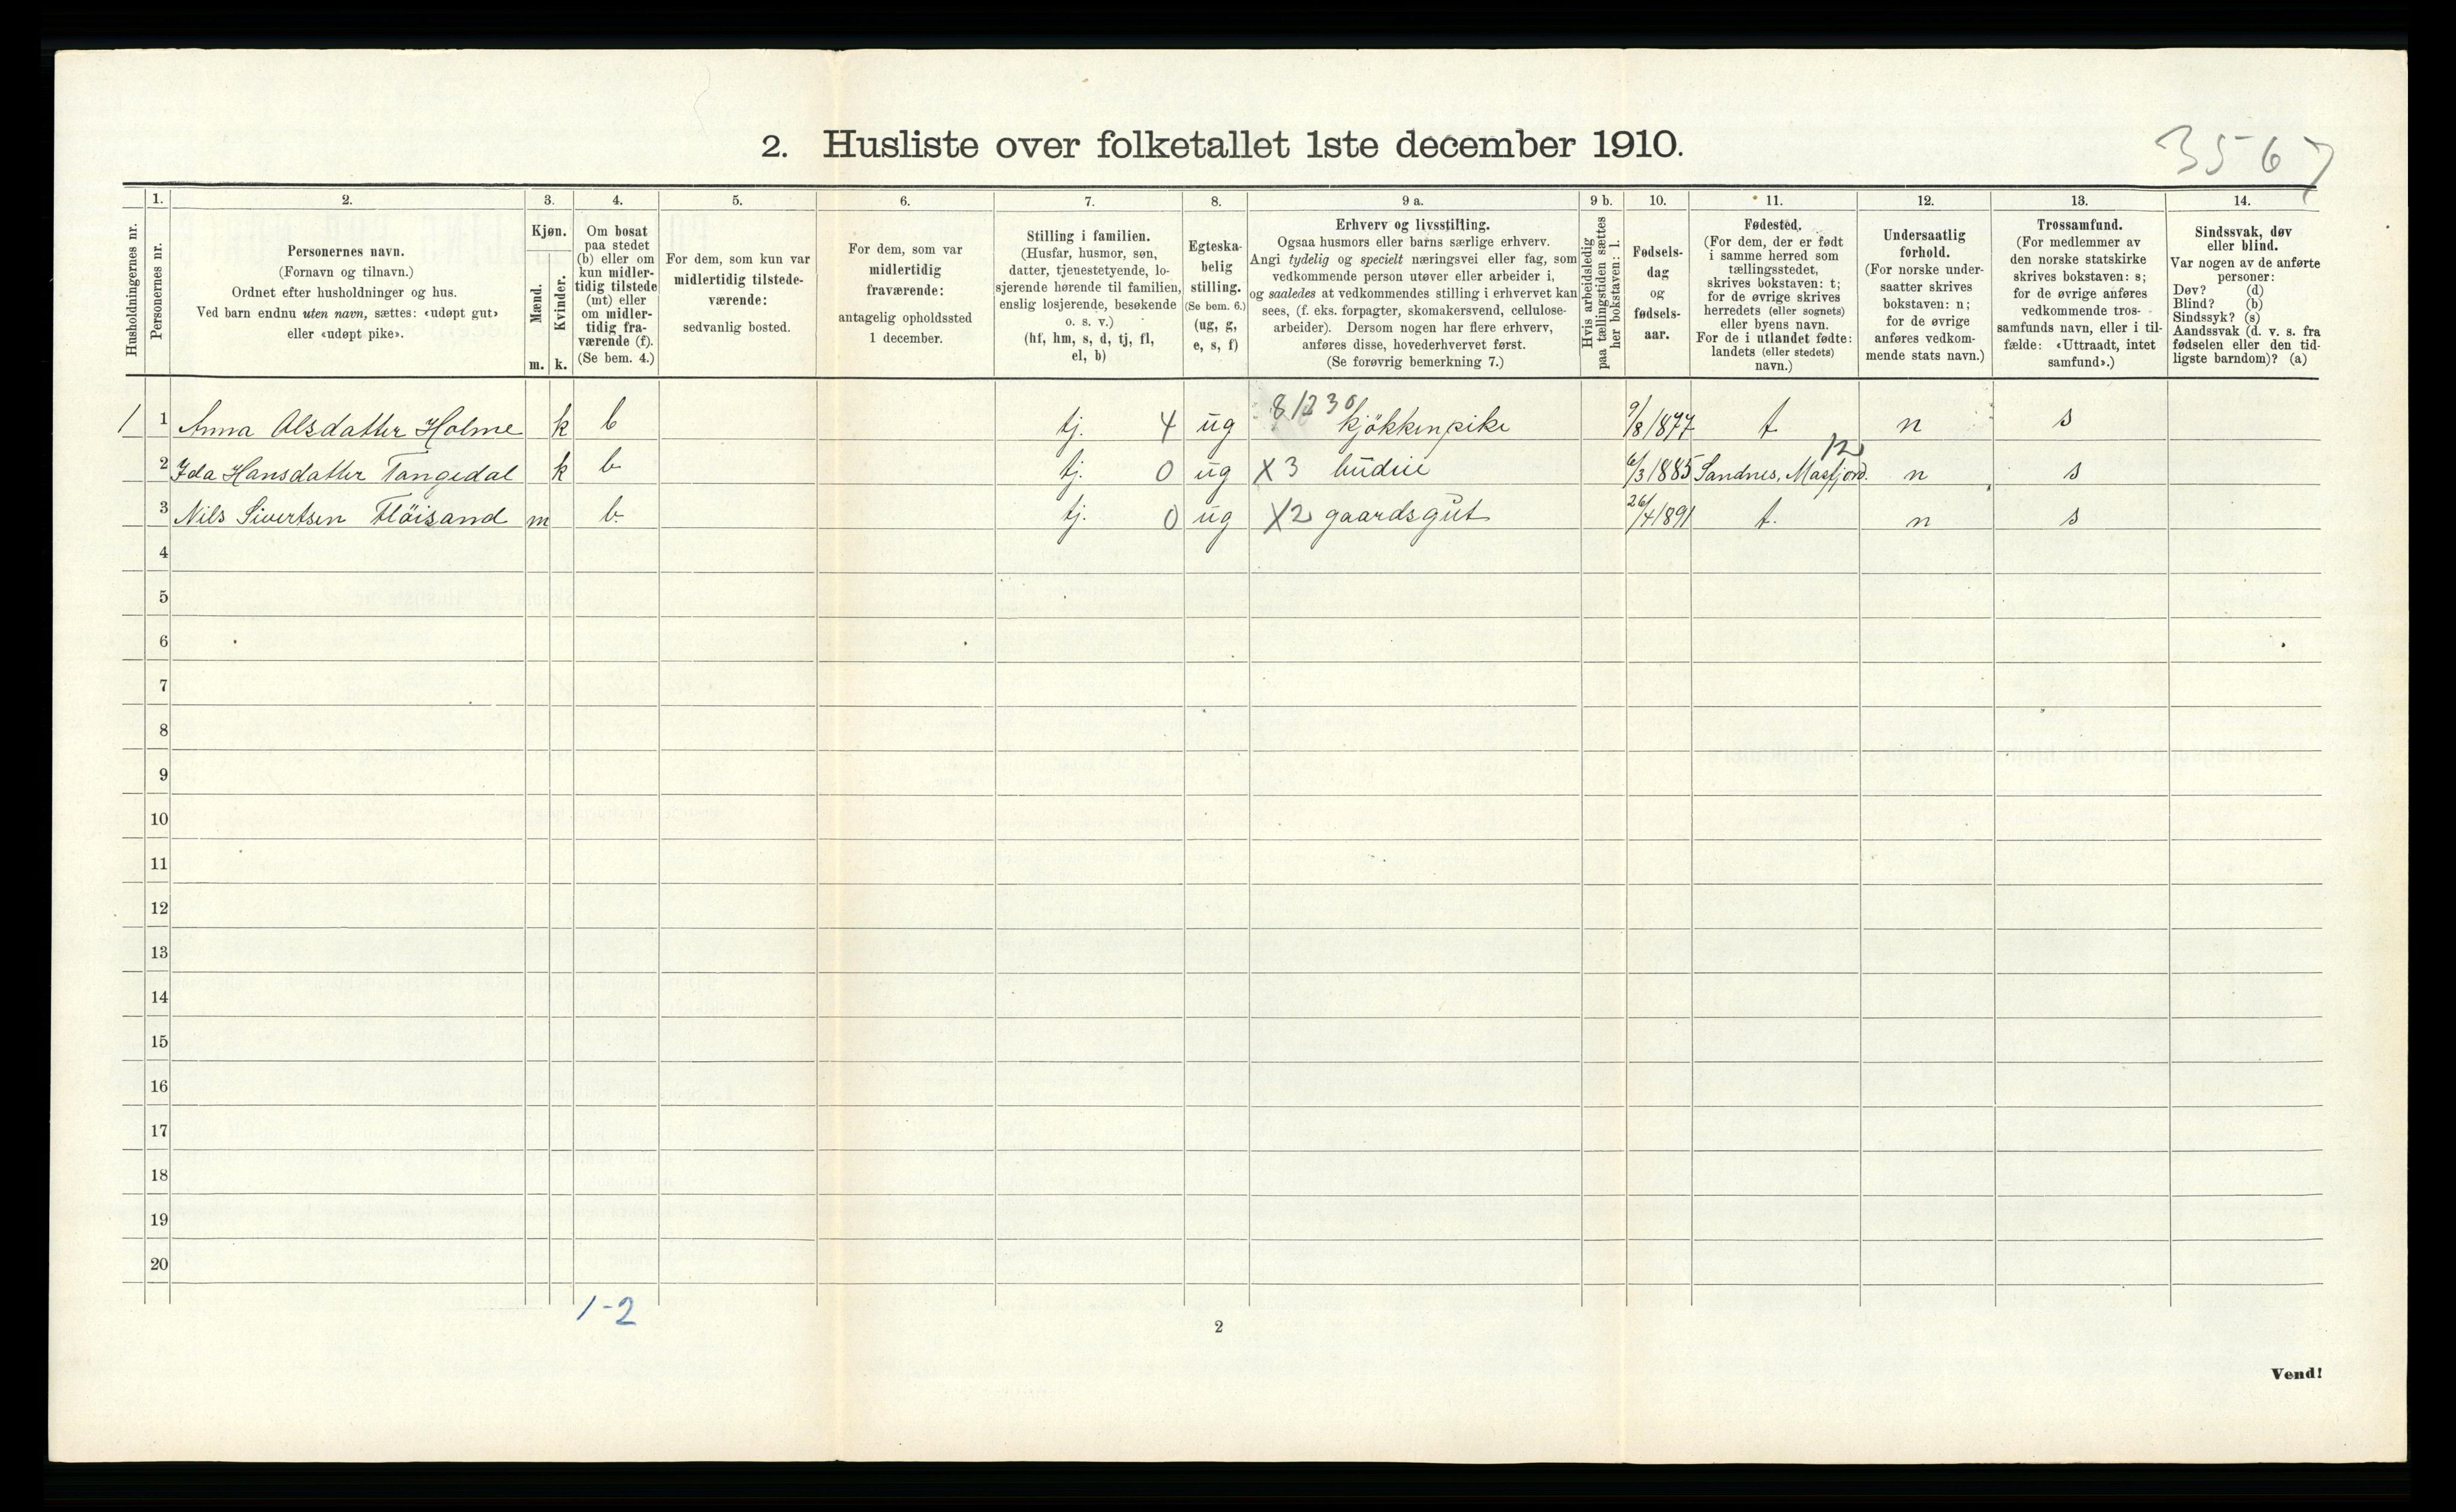 3567
2. Husliste over folketallet 1ste december 1910.
Husholdningernes nr.
1.
Personernes nr.
2.
Personernes navn.
(Fornavn og tilnavn.)
Ordnet efter husholdninger og hus.
Ved barn endnu uten navn, sættes: «udøpt gut»
eller «udøpt pike».
3.
Kjøn.
Mænd.
Kvinder.
m. k.
4.
Om bosat
paa stedet
(b) eller om
kun midler-
tidig tilstede
(mt) eller
om midler-
tidig fra-
værende (f).
(Se bem. 4.)
5.
For dem, som kun var
midlertidig tilstede-
værende:
sedvanlig bosted.
6.
For dem, som var
midlertidig
fraværende:
antagelig opholdssted
1 december.
7.
Stilling i familien.
(Husfar, husmor, søn,
datter, tjenestetyende, lo-
sjerende hørende til familien,
enslig losjerende, besøkende
o. s. v.)
(hf, hm, s, d, tj, fl,
el, b)
8.
Egteska-
belig
stilling.
(Se bem. 6.)
(ug, g,
e, s, f)
9 a.
Erhverv og livsstilling.
Ogsaa husmors eller barns særlige erhverv.
Angi tydelig og specielt næringsvei eller fag, som
vedkommende person utøver eller arbeider i,
og saaledes at vedkommendes stilling i erhvervet kan
sees, (f. eks. forpagter, skomakersvend, cellulose-
arbeider). Dersom nogen har flere erhverv,
anføres disse, hovederhvervet først.
(Se forøvrig bemerkning 7.)
9 b.
Hvis arbeidsledig
paa tællingstiden sættes
her bokstaven: l.
10.
Fødsels-
dag
og
fødsels-
aar.
11.
Fødested.
(For dem, der er født
i samme herred som
tællingsstedet,
skrives bokstaven: t;
for de øvrige skrives
herredets (eller sognets)
eller byens navn.
For de i utlandet fødte:
landets (eller stedets)
navn.)
12.
Undersaatlig
forhold.
(For norske under-
saatter skrives
bokstaven: n;
for de øvrige
anføres vedkom-
mende stats navn.)
13.
Trossamfund.
(For medlemmer av
den norske statskirke
skrives bokstaven: s;
for de øvrige anføres
vedkommende tros-
samfunds navn, eller i til-
fælde: «Uttraadt, intet
samfund».)
14.
Sindssvak, døv
eller blind.
Var nogen av de anførte
personer:
Døv? (d)
Blind? (b)
Sindssyk? (s)
Aandssvak (d. v. s. fra
fødselen eller den tid-
ligste barndom)? (a)
1 1 Anna Olsdatter Holme k b tj. 4 ug 81230 kjøkkenpike 9/8 1877 t n s
12
2 Ida Hansdatter Tangedal k b tj. 0 ug X3 budeie 6/3 1885 Sandnes, Masfjord. n s
3 Nils Sivertsen Fløisand m b. tj. 0 ug X2 gaardsgut 26/4 1891 t. n s
4
5
6
7
8
9
10
11
12
13
14
15
16
17
18
19
20
1-2
2
Vend!